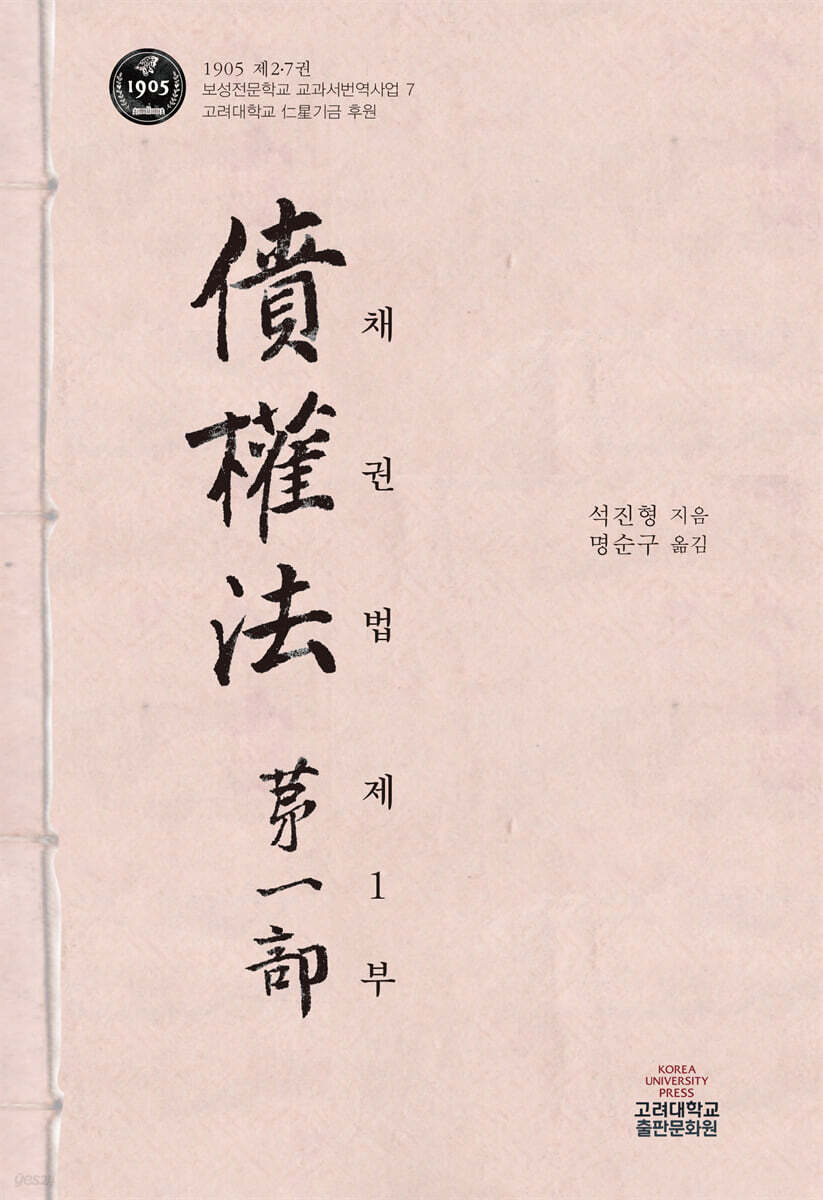 1905
1905 제2·7권
보성전문학교 교과서번역사업 7
고려대학교 仁星기금 후원
債權法 第一部
채권법 제1부
석진형 지음
명순구 옮김
KOREA
UNIVERSITY
PRESS
고려대학교
출판문화원
yes24